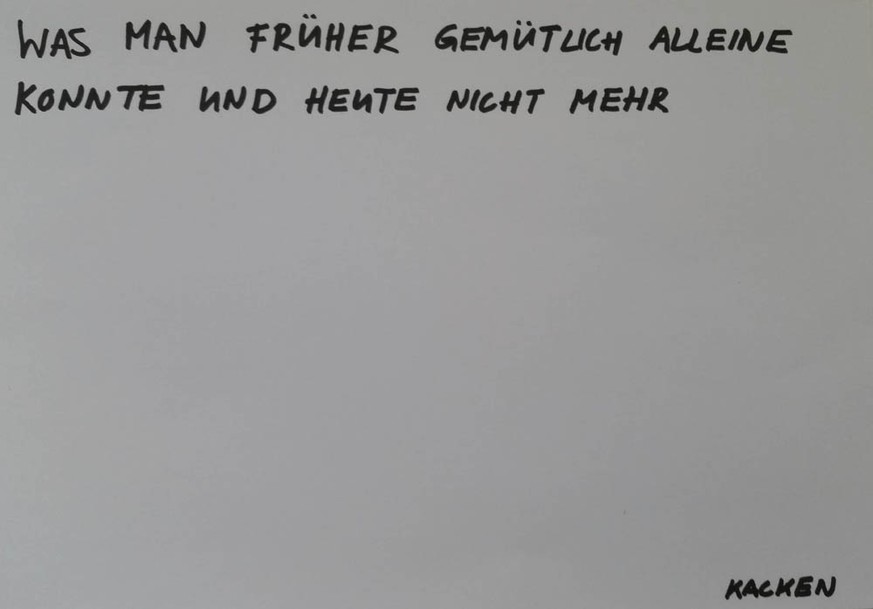 WAS MAN FRÜHER GEMÜTLICH ALLEINE
KONNTE UND HEUTE NICHT MEHR
KACKEN